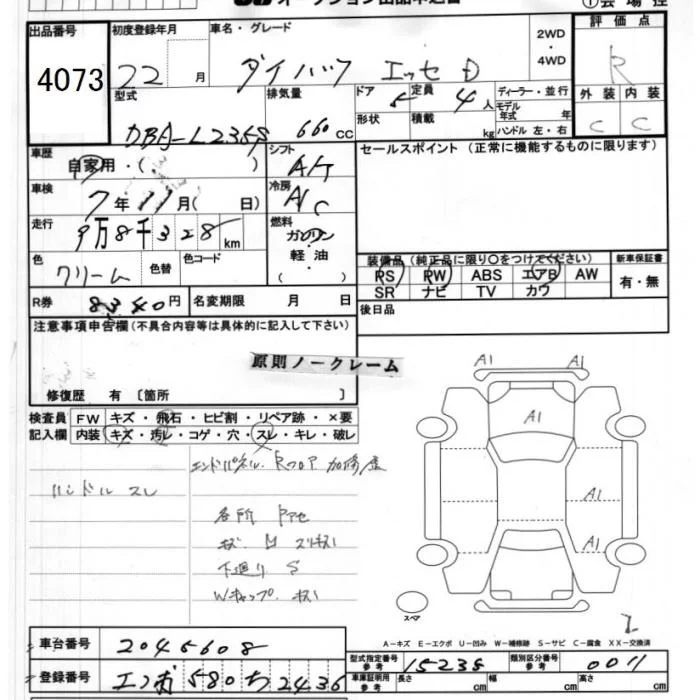 ①会場控
出品番号
4073
初度登録年月
22 月
車名・グレード
ダイハツ エッセ D
2WD
・
4WD
評価点
R
型式
DBA-L235S
排気量
660 cc
ドア 5
形状
定員 4 人
積載 kg
ディーラー・並行
モデル年式 年
ハンドル 左・右
外装 内装
C C
車歴
自家用・( )
シフト
AT
セールスポイント (正常に機能するものに限ります)
車検
7年11月( 日)
冷房
AC
走行
9万8千328km
燃料
ガソリン
軽油
( )
色
クリーム
色替
色コード
装備品(純正品に限り○をつけてください)
新車保証書
PS PW ABS エアB AW
有・無
SR ナビ TV カワ
R券 8340円
名変期限 月 日
後日品
注意事項申告欄(不具合内容等は具体的に記入して下さい)
原則ノークレーム
修復歴 有〔箇所 〕
検査員 FW キズ・飛石・ヒビ割・リペア跡・×要
記入欄 内装 キズ・汚レ・コゲ・穴・スレ・キレ・破レ
エンドパネル.Rフロア 加修歴
ハンドル スレ
各所
下廻り S
Wキャップ. キズ
A1 A1
A1
A1
A1
スペア
A-キズ E-エクボ U-凹み W-補修跡 S-サビ C-腐食 XX-交換済
車台番号 2045608
型式指定番号 参考 15238
類別区分番号 参考 0011
登録番号 580 ち 2436
車庫証明用 参考 長さ cm 幅 cm 高さ cm